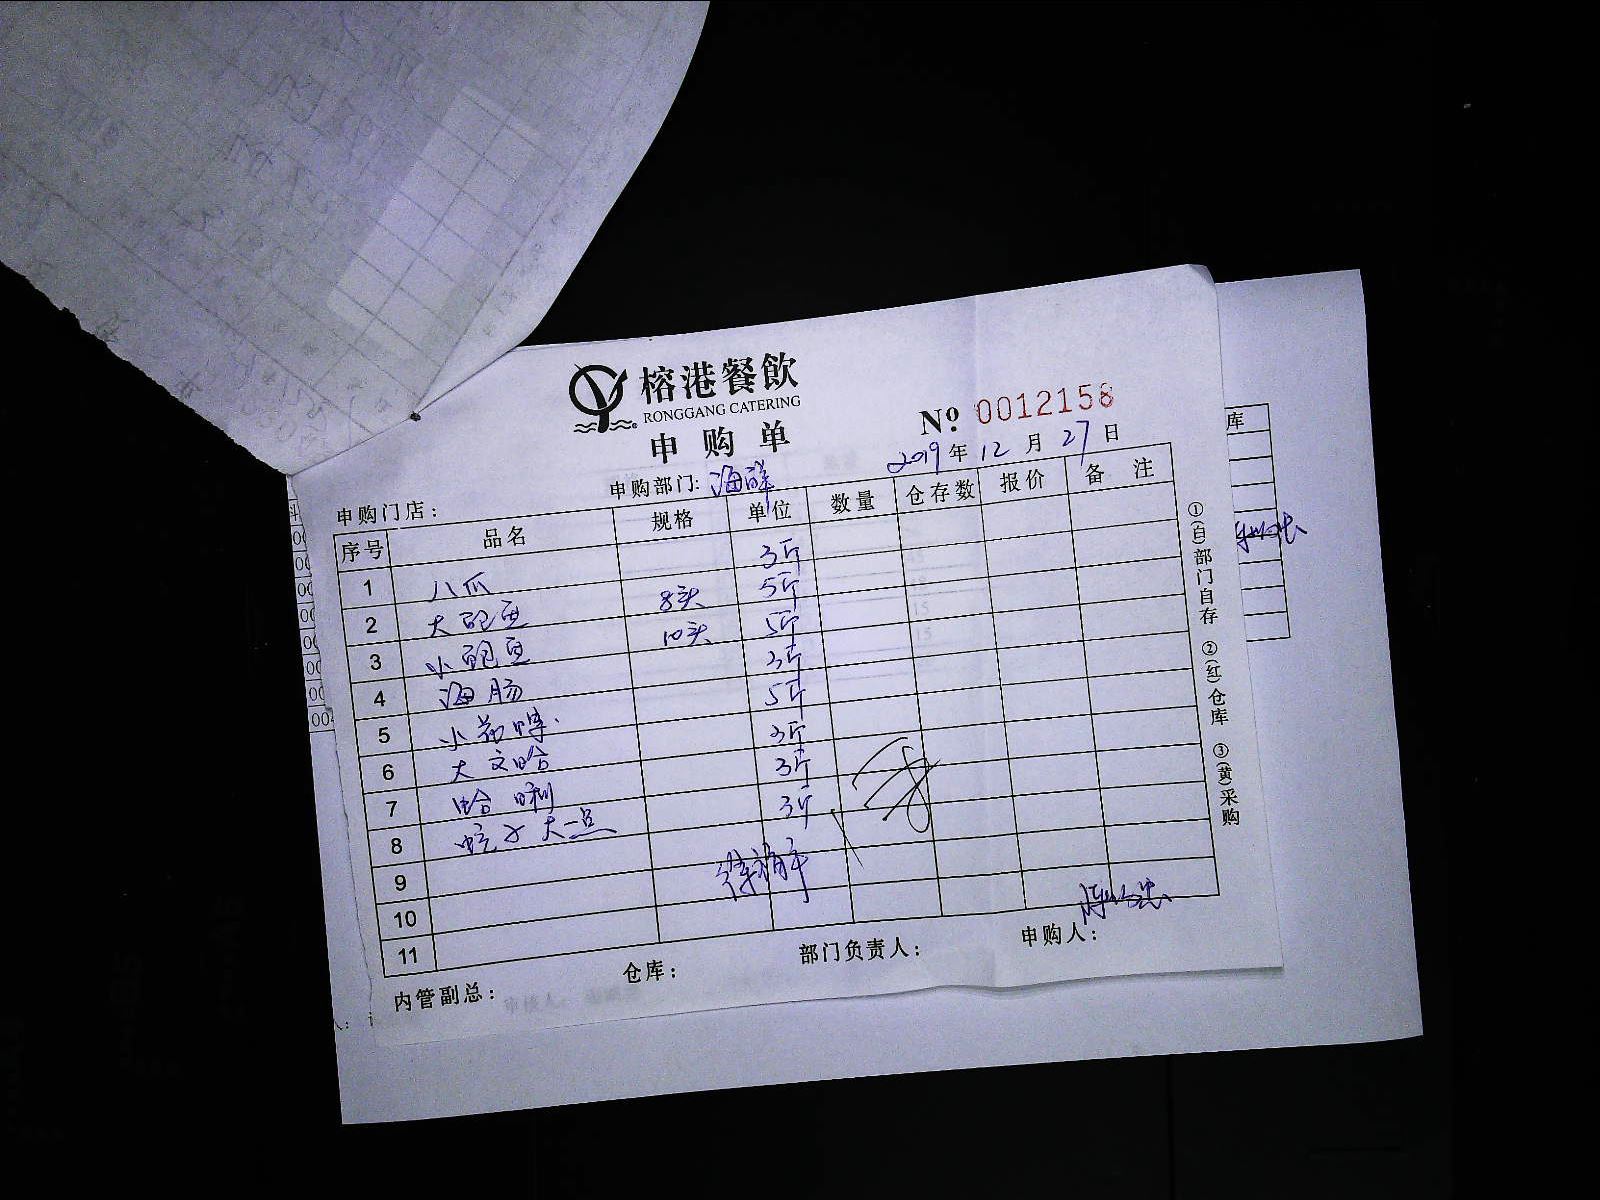 榕港餐飲
RONGGANG CATERING
申购单
№ 0012158
2019年 12月 27日
申购门店： 申购部门: 海鲜
序号 品名 规格 单位 数量 仓存数 报价 备 注
1 八爪 3斤
2 大鲍鱼 8头 5斤
3 小鲍鱼 10头 5斤
4 海肠 3斤
5 小 5斤
6 大文哈 3斤
7 哈喇 3斤
8 蚬子 大一点 3斤
9
10
11
内管副总： 仓库： 部门负责人： 申购人：
①(白)部门自存 ②(红)仓库 ③(黄)采购
库